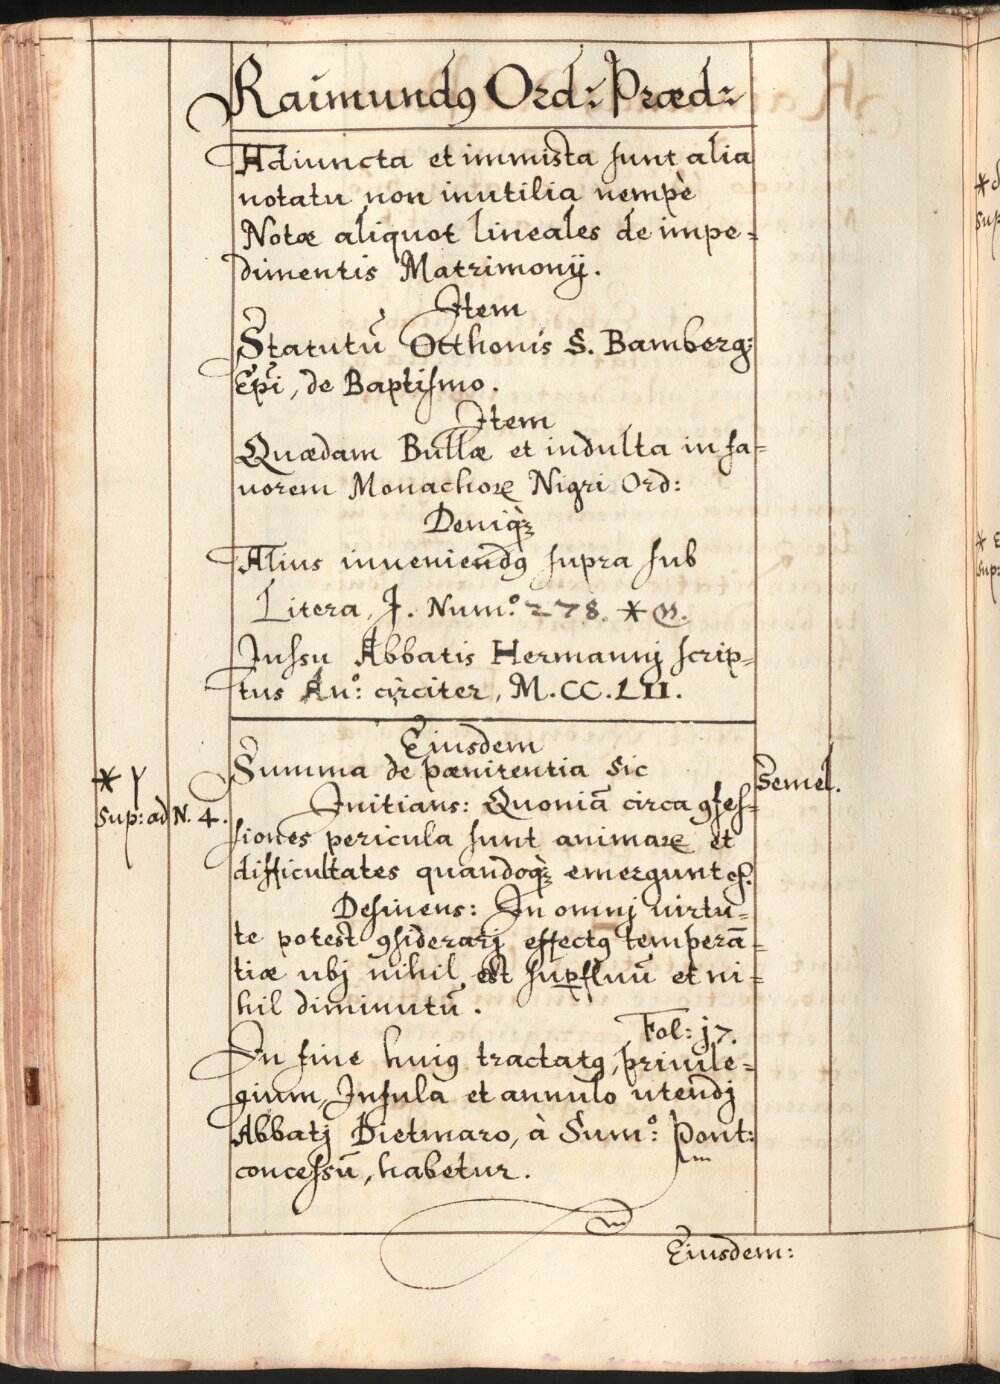 Raimundꝰ Ord: Præd:
Adiuncta et immista sunt alia
notatu non inutilia nempè
Notæ aliquot lineales de impe=
dimentis Matrimonij.
Item
Statutū Otthonis S. Bamberg:
Epi, de Baptismo.
Item
Quædam Bullæ et indulta in fa=
uorem Monachoꝝ Nigri Ord:
Deniqꝫ
Alius inueniendꝰ supra sub
Litera, J. Num.o 278. *
Jussu Abbatis Hermannj scrip=
tus An.o: circiter, M.CC.LII.
Eiusdem
Summa de pænitentia Sic
Semel.
* Y
Sup: ad N. 4.
Initians: Quoniā circa ꝯfes=
siones pericula sunt animaꝝ et
difficultates quandoqꝫ emergunt
Desinens: In omnj uirtu=
te potest ꝯsiderarj effectꝰ temperā=
tiæ ubj nihil est suꝑfluū et ni=
hil diminutū.
Fol: j7.
In fine huiꝰ tractatꝰ, priuile=
gium, Insula et annulo utendj
Abbatj Dietmaro, à Sum.o: Pont:
concessū, habetur.
Eiusdem: